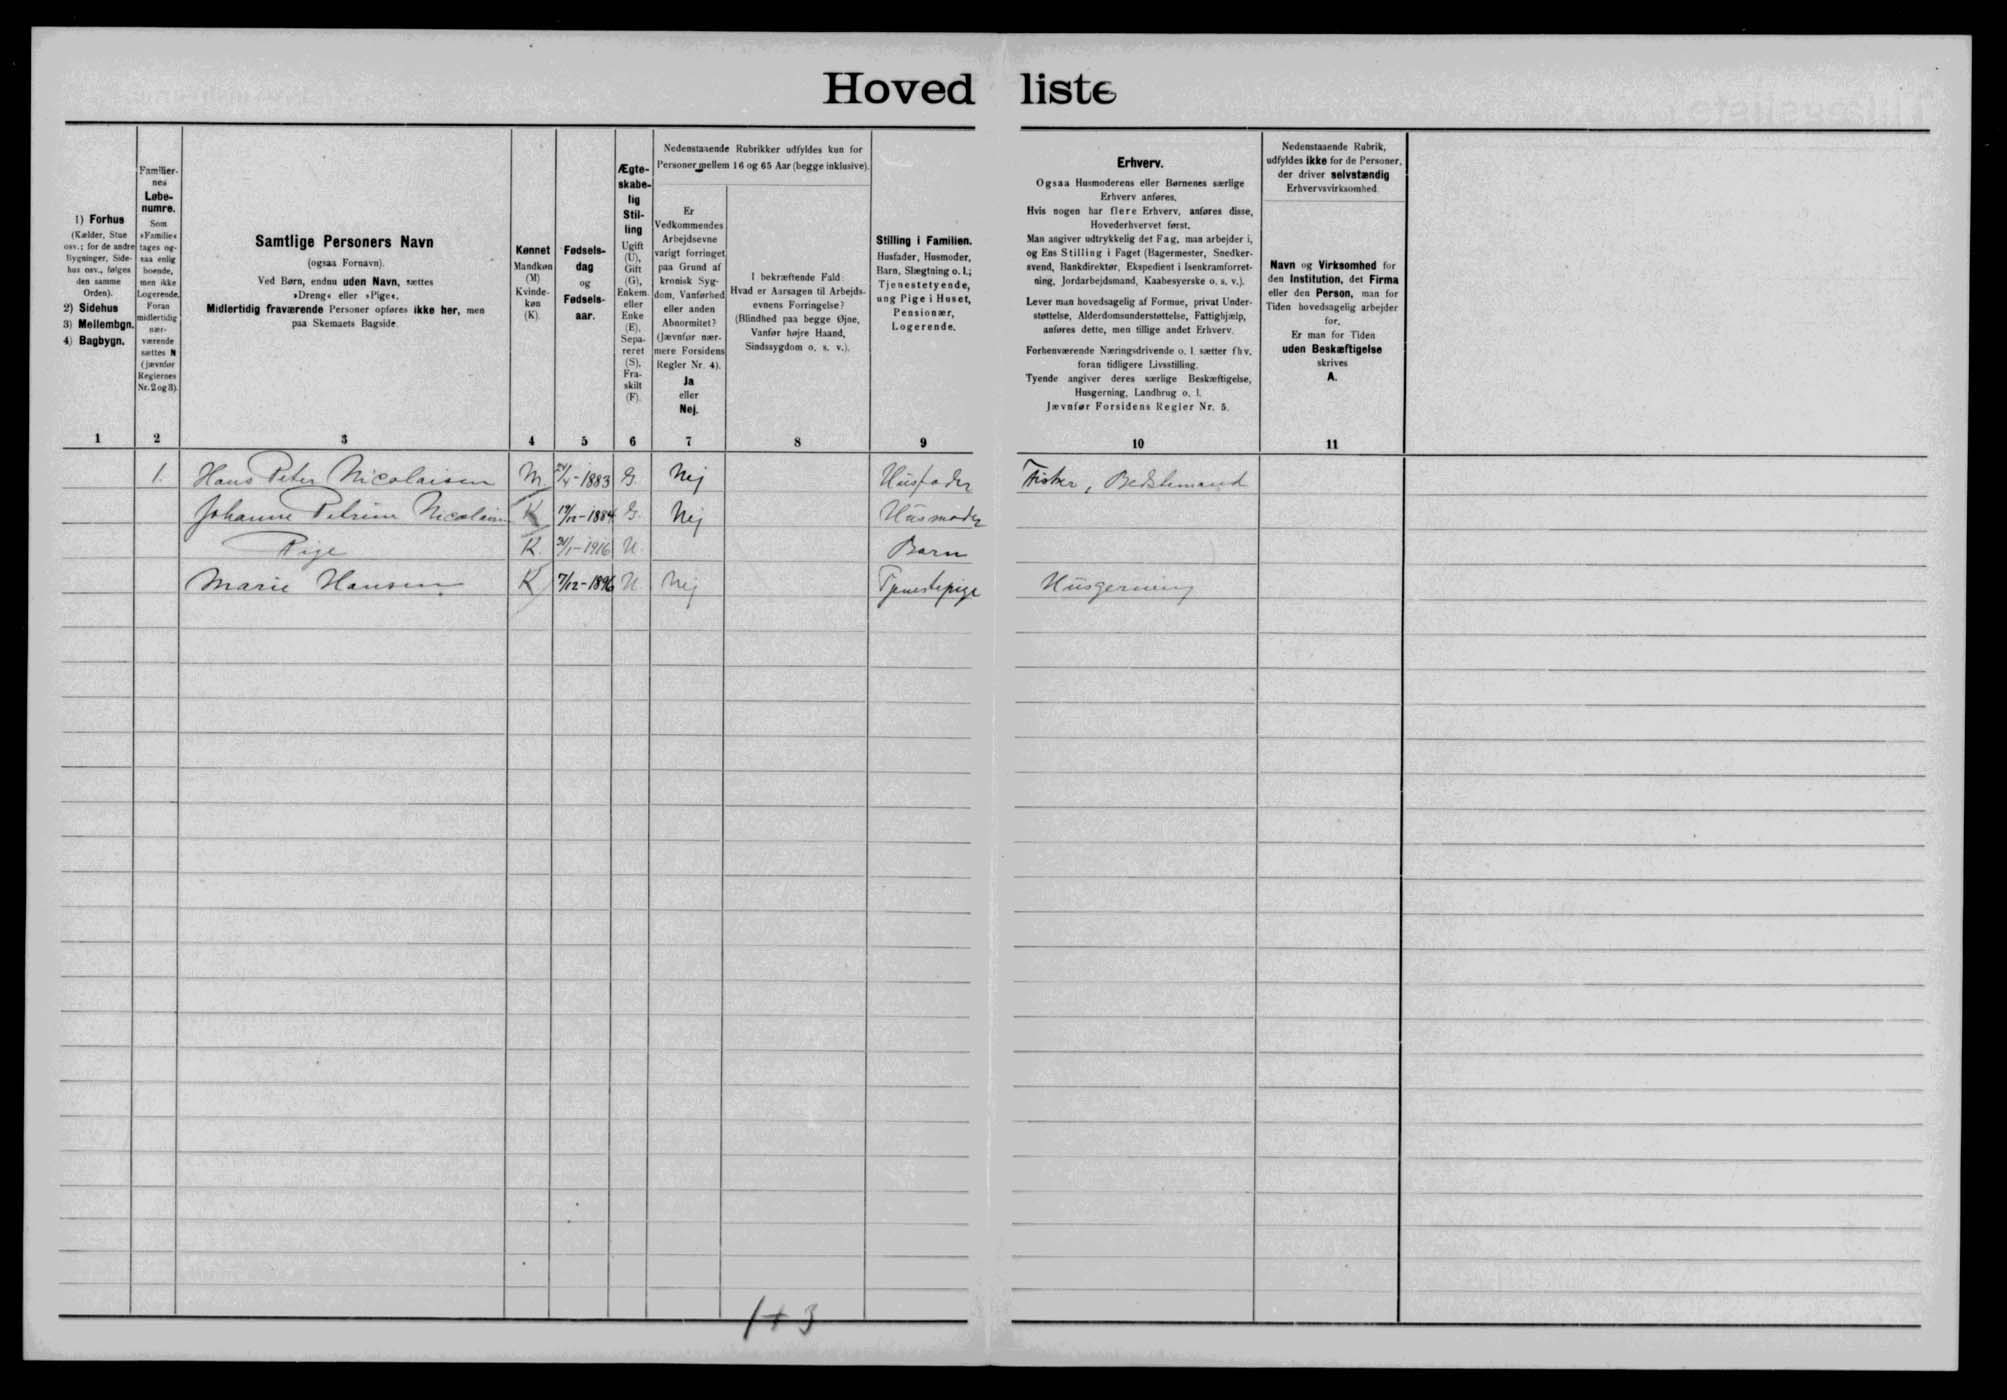 Hovedliste
1) Forhus
(Kælder, Stue
osv.; for de andre
Bygninger, Side-
hus osv., følges
den samme
Orden).
2) Sidehus
3) Mellembgn.
4) Bagbygn.
Familier-
nes
Løbe-
numre.
Som
»Familie«
tages og-
saa enlig
boende,
men ikke
Logerende.
Foran
midlertidig
nær-
værende
sættes N
(jævnfør
Reglernes
Nr. 2 og 3).
Samtlige Personers Navn
(ogsaa Fornavn).
Ved Børn, endnu uden Navn, sættes
»Dreng« eller »Pige«.
Midlertidig fraværende Personer opføres ikke her, men
paa Skemaets Bagside.
Kønnet
Mandkøn
(M)
Kvinde-
køn
(K).
Fødsels-
dag
og
Fødsels-
aar.
Ægte-
skabe-
lig
Stil-
ling
Ugift
(U),
Gift
(G),
Enkem.
eller
Enke
(E),
Sepa-
reret
(S),
Fra-
skilt
(F).
Nedenstaaende Rubrikker udfyldes kun for
Personer mellem 16 og 65 Aar (begge inklusive).
Er
Vedkommendes
Arbejdsevne
varigt forringet
paa Grund af
kronisk Syg-
dom, Vanførhed
eller anden
Abnormitet?
(Jævnfør nær-
mere Forsidens
Regler Nr. 4).
Ja
eller
Nej.
I bekræftende Fald:
Hvad er Aarsagen til Arbejds-
evnens Forringelse?
(Blindhed paa begge Øjne,
Vanfør højre Haand,
Sindssygdom o. s. v.).
Stilling i Familien.
Husfader, Husmoder,
Barn, Slægtning o. l.;
Tjenestetyende,
ung Pige i Huset,
Pensionær,
Logerende.
Erhverv.
Ogsaa Husmoderens eller Børnenes særlige
Erhverv anføres.
Hvis nogen har flere Erhverv, anføres disse,
Hovederhvervet først.
Man angiver udtrykkelig det Fag, man arbejder i,
og Ens Stilling i Faget (Bagermester, Snedker-
svend, Bankdirektør, Ekspedient i Isenkramforret-
ning, Jordarbejdsmand, Kaabesyerske o. s. v.).
Lever man hovedsagelig af Formue, privat Under-
støttelse, Alderdomsunderstøttelse, Fattighjælp,
anføres dette, men tillige andet Erhverv.
Forhenværende Næringsdrivende o. l. sætter fhv.
foran tidligere Livsstilling.
Tyende angiver deres særlige Beskæftigelse,
Husgerning, Landbrug o. l.
Jævnfør Forsidens Regler Nr. 5.
Nedenstaaende Rubrik,
udfyldes ikke for de Personer,
der driver selvstændig
Erhvervsvirksomhed.
Navn og Virksomhed for
den Institution, det Firma
eller den Person, man for
Tiden hovedsagelig arbejder
for.
Er man for Tiden
uden Beskæftigelse
skrives
A.
1 2 3 4 5 6 7 8 9 10 11
1. Hans Peter Nicolaisen M. 1883 G. Nej Husfader Fisker, Bedstemand
Johanne Petrine Nicolaisen K 1884 G. Nej Husmoder
Pige K. 1916 U. Barn
Marie Hansen K 7/12-1896 U Nej Tjenestepige Husgerning
1+3